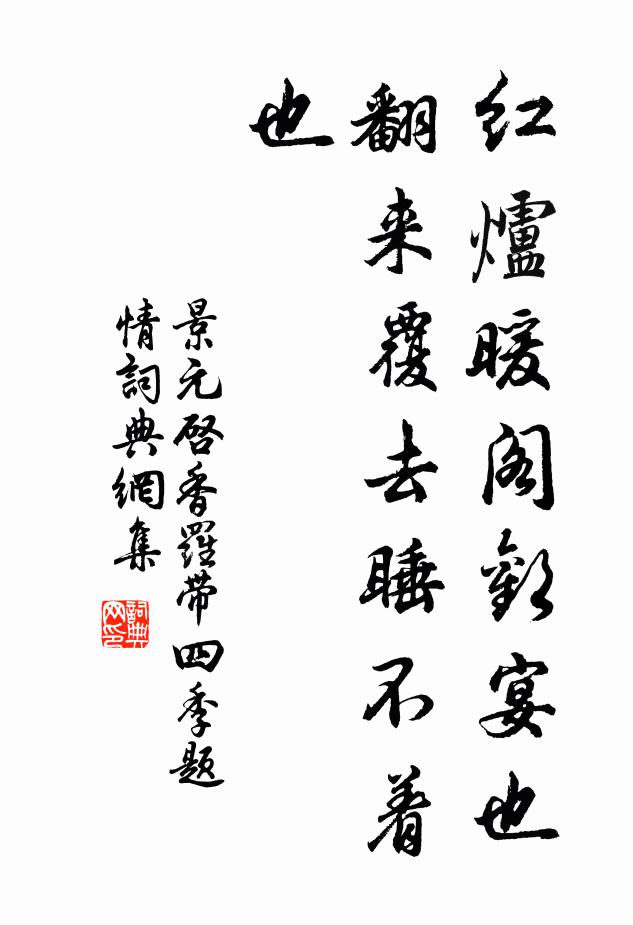 红爐暖阁歡宴也
翻来覆去睡不着
也
景元啓香羅带四季题
情詞典網集
詞典网印